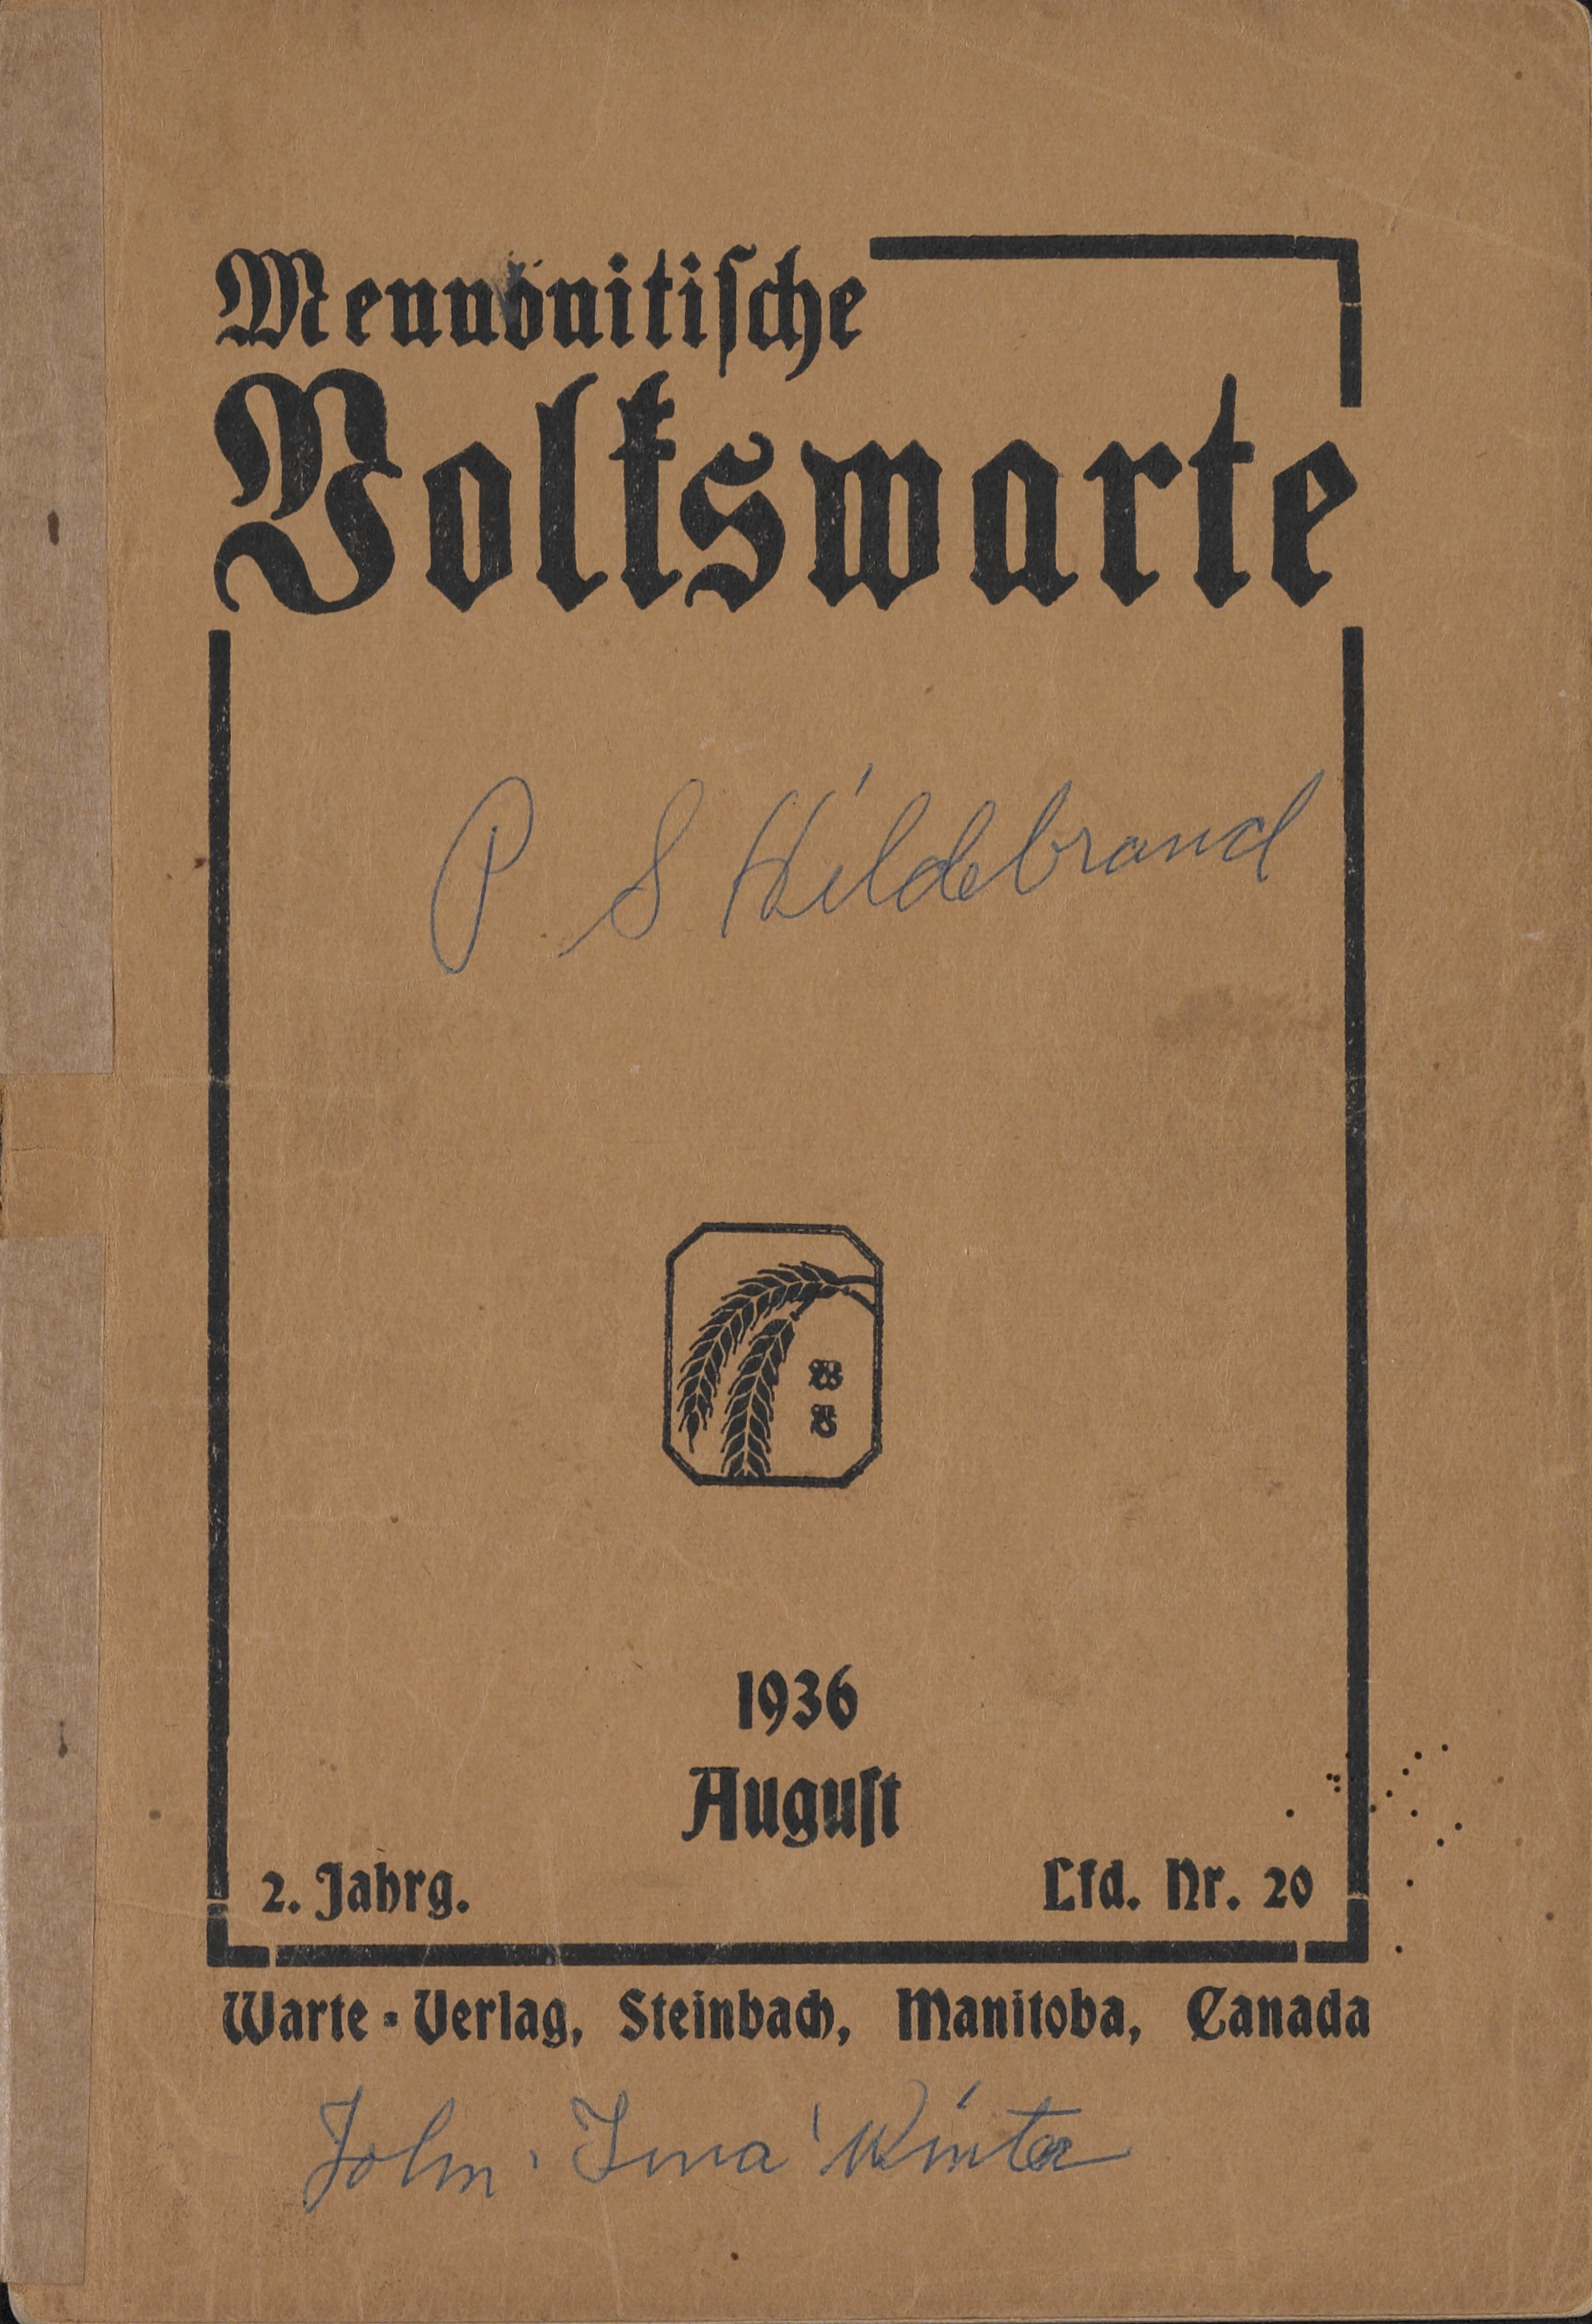 Mennonitische
Volkswarte
P S Hildebrand
1936
August
2. Jahrg.
Lfd. Nr. 20
Warte-Verlag, Steinbach, Manitoba, Canada
John, Irma Winter